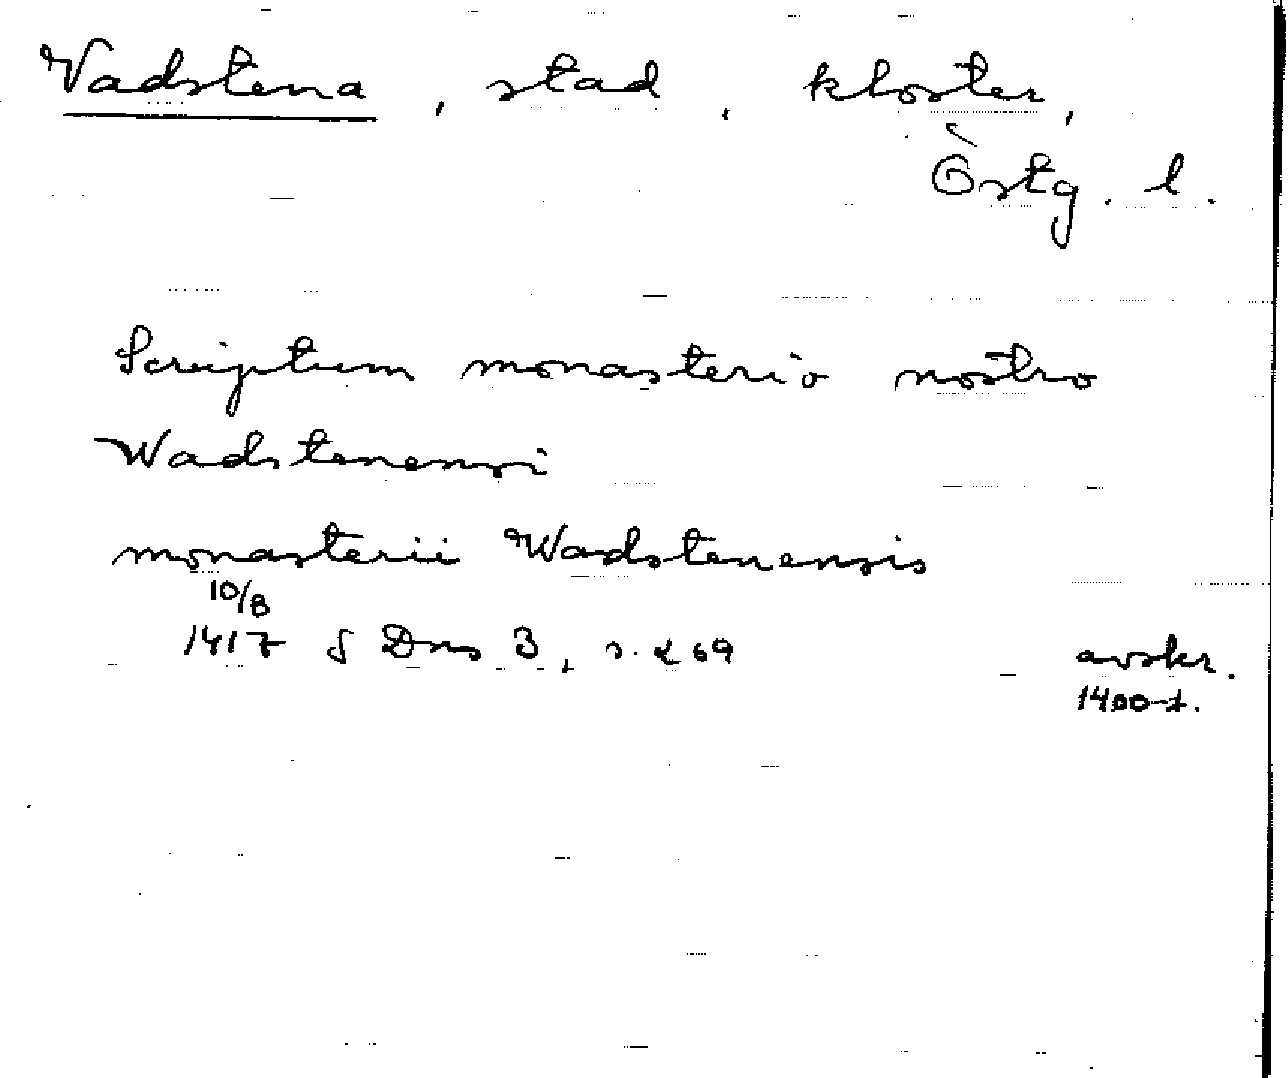 Vadstena, stad, kloster,
Östg. l.
Scriptum monasterio nostro
Wadstenensi
monasterii Wadstenensis
10/8
1417 § Dns 3, s. 269
avskr.
1400-t.